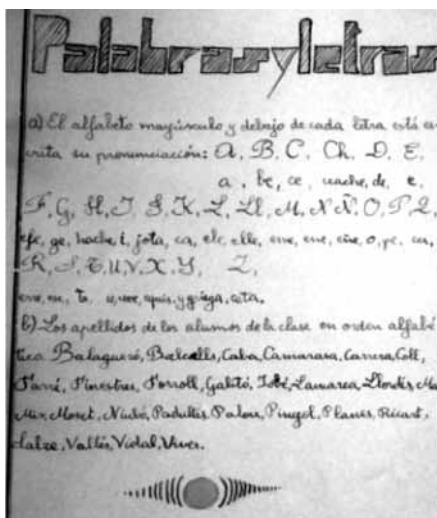 Palabras y letras
a) El alfabeto mayúsculo y debajo de cada letra está es-
crita su pronunciación: A, B, C, Ch, D, E,
a, be, ce, de, e,
F, G, H, I, J, K, L, Ll, M, N Ñ, O, P Q,
efe, ge, hache, i, jota, ca, ele, elle, eme, ene, eñe, o, pe, cu,
R, S, T, U, V, X, Y, Z,
ere, ese, te, u, uve, equis, y griega, ceta.
b) Los apellidos de los alumnos de la clase en orden alfabé-
tica Balagueró, Balcells, Caba, Camarasa, Carrera, Coll,
Farré, Finestres, Forroll, Gabitó, Jobé, Lamarca, Llordés, Ma
Mir, Moret, Niubó, Padullés, Palou, Pinyol, Planes, Ricart,
Vallés, Vidal, Vives.